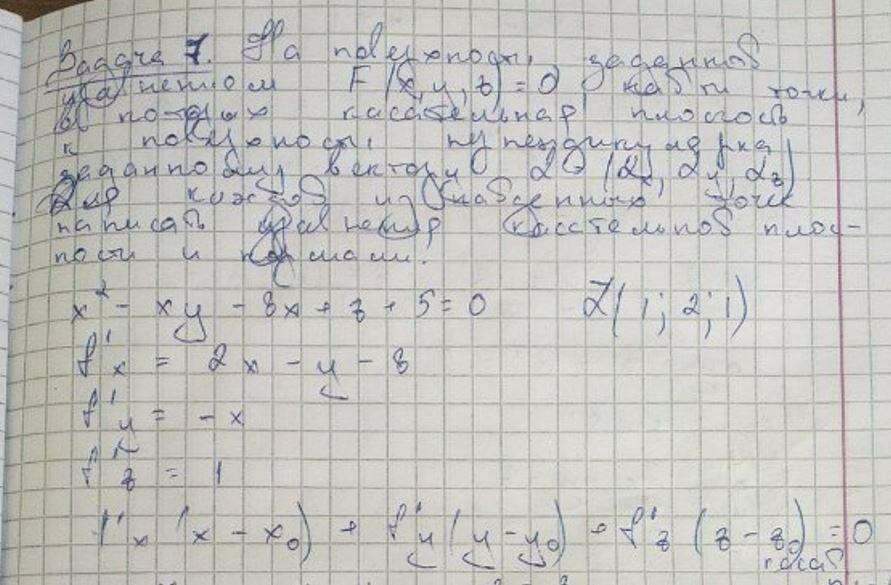 Задача 7. На поверхности, заданной
уравнением F(x, y, z) = 0 найти точки,
в которых касательная плоскость
к поверхности, перпендикулярна
заданному вектору α (αx, αy, αz)
Для каждой из найденных точек
написать уравнения касательной плос-
кости и нормали.
x² - xy - 8x + z + 5 = 0 α(1; 2; 1)
f'x = 2x - y - 8
f'y = -x
f'z = 1
f'x (x - x₀) + f'y (y - y₀) + f'z (z - z₀) = 0
касат